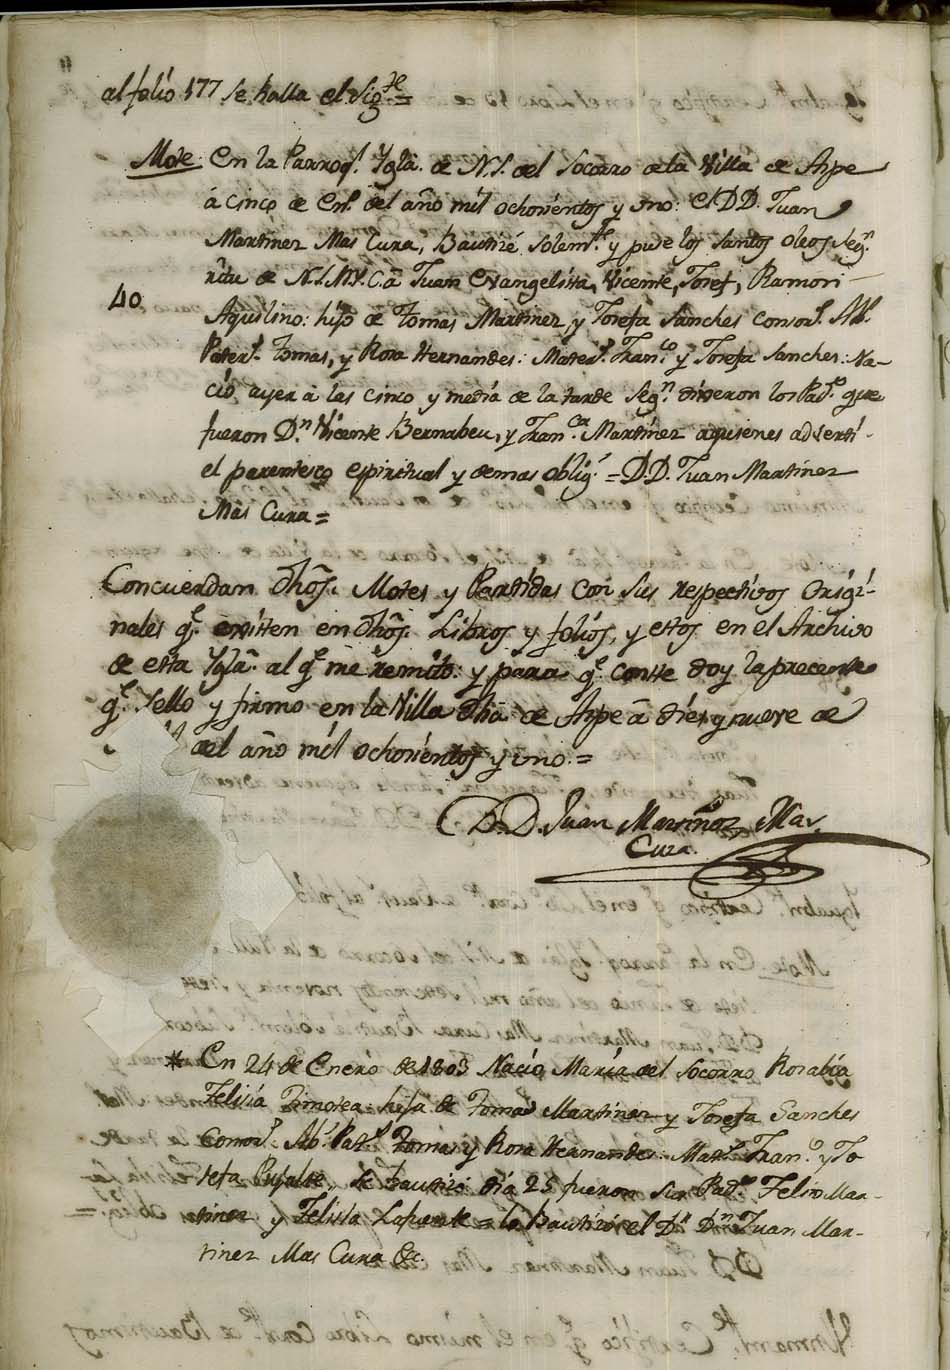 al folio 177 se halla el sigte =
Mote En la Parroql. Ygla. de N.S. del Socorro de la Villa de Aspe
á cinco de Enº. del año mil ochocientos y uno: el D.D. Juan
Martinez Mas Cura, Bautizé solemte. y puse los santos oleos segn.
ritu de N.S.M.Y. C. á Juan Evangelista, Vicente, Josef, Ramon
40
Aquilino: hijo de Tomas Martinez y Josefa Sanches consors. Abs.
Paters. Tomas, y Rosa Hernandes: Maters. Franco. y Josefa Sanches: Na-
ció ayer á las cinco y media de la tarde segn. dixeron los Pads. que
fueron Dn. Vicente Bernabeu, y Franca. Martinez aquienes adverti
el parentesco espiritual y demas oblig.s = D.D. Juan Martinez
Mas Cura =
Concuerdan dhos. Motes y Partidas con sus respectivos Origi-
nales qe. existen en dhos. Libros y folios, y estos en el Archivo
de esta Ygla. al qe. me remito: y para qe. conste doy la precente
qe. sello y firmo en la Villa dha de Aspe á dies y nueve de
del año mil ochocientos y uno. =
D.D. Juan Martinez Mas
Cura.
* En 24 de Enero de 1803 Nació María del Socorro Rosalia
Felisia Timotea: hija de Tomas Martinez y Josefa Sanches
Consors. Abs. Pats. Tomas y Rosa Hernandes. Mats. Franco. y Jo
sefa Pujalte, se bautizó dia 25 fueron sus Pads. Felix Mar-
tinez y Felisia Lafuente = la Bautizó el Dr. Dn. Juan Mar-
tinez Mas Cura &c.